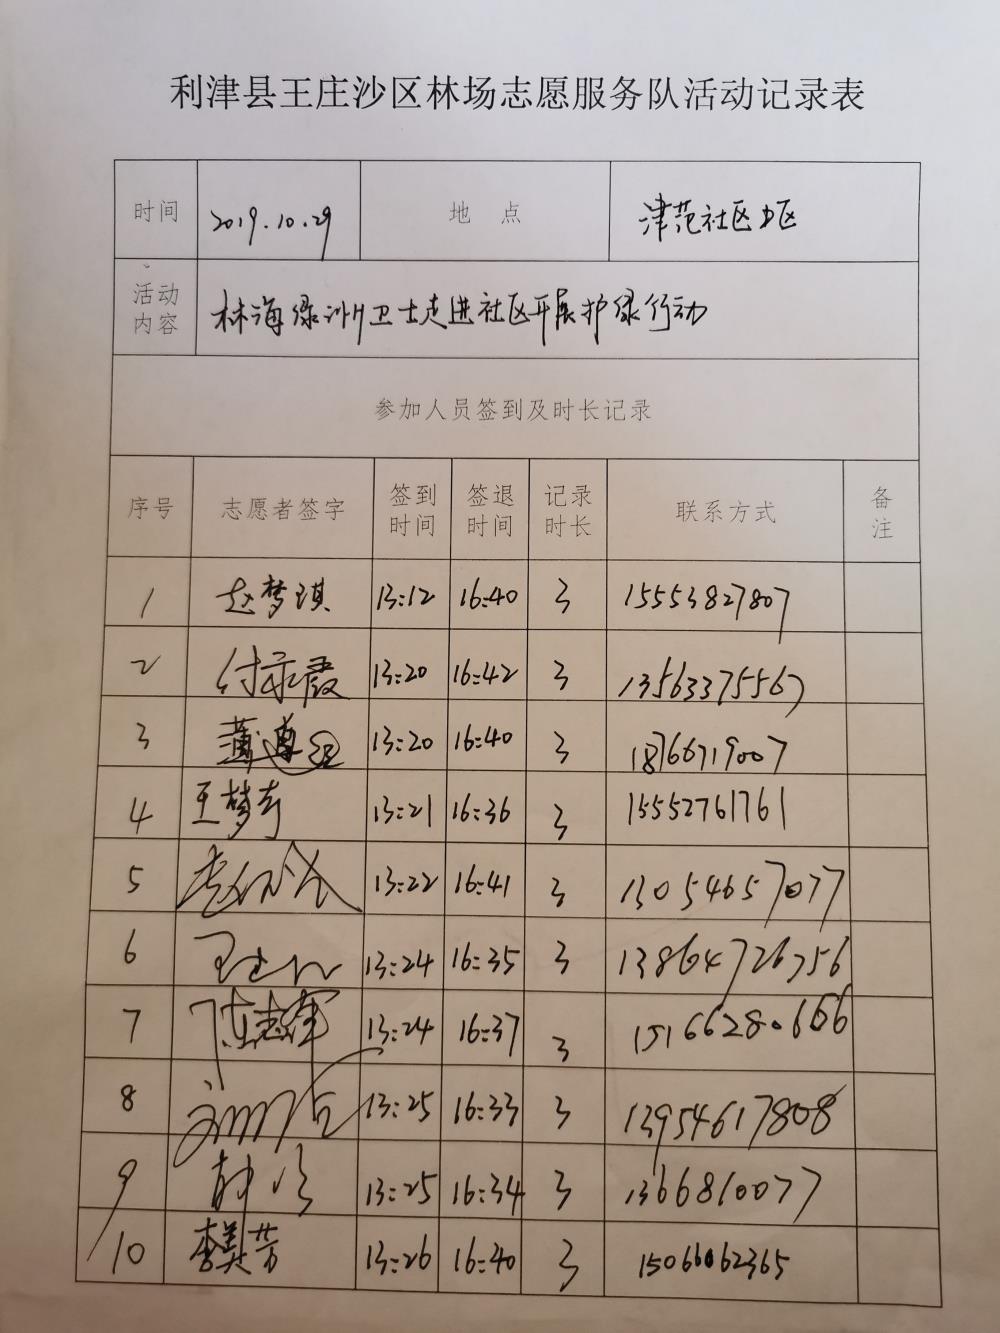 利津县王庄沙区林场志愿服务队活动记录表
时间 2019.10.29 地 点 津苑社区A区
活动内容 林海绿洲卫士走进社区开展护绿行动
参加人员签到及时长记录
序号 志愿者签字 签到时间 签退时间 记录时长 联系方式 备注
1 赵梦琪 13:12 16:40 3 15553827807
2 付录霞 13:20 16:42 3 13563375567
3 13:20 16:40 3 18766719007
4 王梦奇 13:21 16:36 3 15552761761
5 13:22 16:41 3 13054657077
6 13:24 16:35 3 13864726756
7 陈志军 13:24 16:37 3 15166280666
8 13:25 16:33 3 13954617808
9 13:25 16:34 3 1366810077
10 李美芳 13:26 16:40 3 15066062365